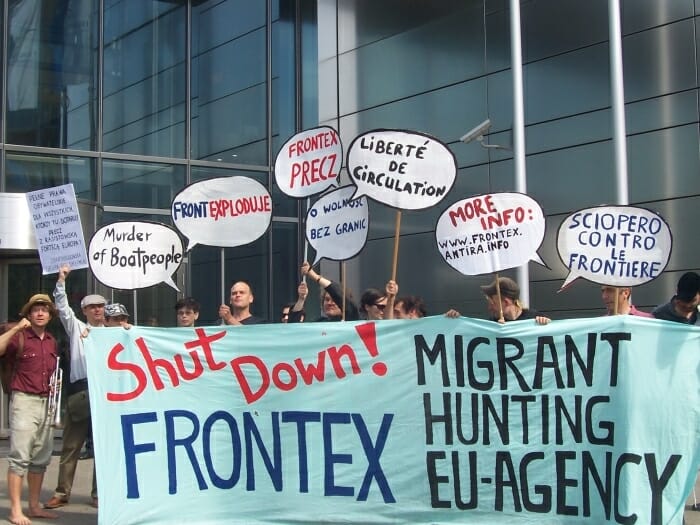 PEŁNE PRAWA
OBYWATELSKIE
DLA WSZYSTKICH
KTÓRZY TU DOTARLI
PRECZ
Z RASISTOWSKĄ
FORTECĄ EUROPA!
Murder
of Boatpeople
FRONTEXPLODUJE
FRONTEX
PRECZ
O WOLNOŚĆ
BEZ GRANIC
LIBERTÉ
DE
CIRCULATION
MORE
INFO:
WWW.FRONTEX.
ANTIRA.INFO
SCIOPERO
CONTRO
LE
FRONTIERE
Shut Down!
FRONTEX
MIGRANT
HUNTING
EU-AGENCY